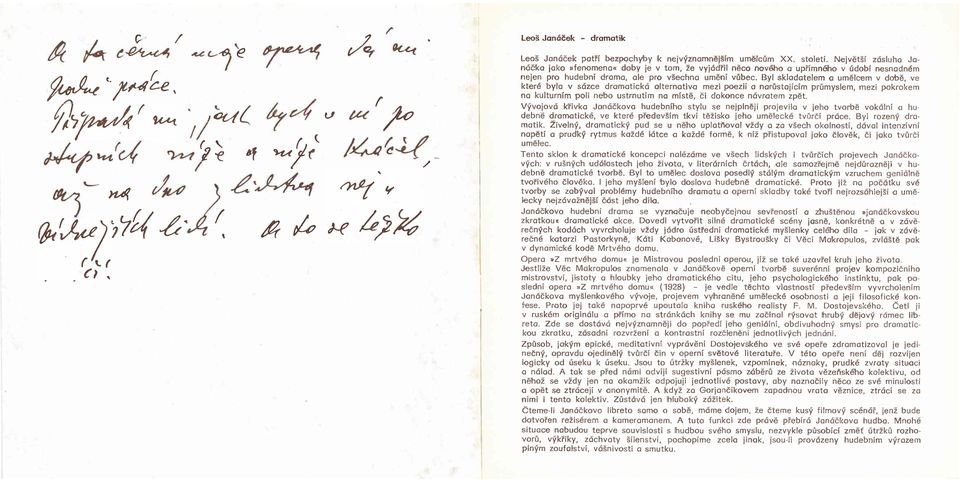 A ta černá moje opera dá mi
hodně práce.
Připadá mi, jak bych v ní po
stupních níže a níže kráčel,
až na dno z lidstva nej
bídnějších lidí. A to se těžko
čí.
Leoš Janáček - dramatik
Leoš Janáček patří bezpochyby k nejvýznamnějším umělcům XX. století. Největší zásluha Ja-
náčka jako »fenomena« doby je v tom, že vyjádřil něco nového a upřímného v údobí nesnadném
nejen pro hudební drama, ale pro všechna umění vůbec. Byl skladatelem a umělcem v době, ve
které byla v sázce dramatická alternativa mezi poezií a narůstajícím průmyslem, mezi pokrokem
na kulturním poli nebo ustrnutím na místě, či dokonce návratem zpět.
Vývojová křivka Janáčkova hudebního stylu se nejplněji projevila v jeho tvorbě vokální a hu-
debně dramatické, ve které především tkví těžisko jeho umělecké tvůrčí práce. Byl rozený dra-
matik. Živelný, dramatický pud se u něho uplatňoval vždy a za všech okolností, dával intenzivní
napětí a prudký rytmus každé látce a každé formě, k níž přistupoval jako člověk, či jako tvůrčí
umělec.
Tento sklon k dramatické koncepci nalézáme ve všech lidských i tvůrčích projevech Janáčko-
vých: v rušných událostech jeho života, v literárních črtách, ale samozřejmě nejdůrazněji v hu-
debně dramatické tvorbě. Byl to umělec doslova posedlý stálým dramatickým vzruchem geniálně
tvořivého člověka. I jeho myšlení bylo doslova hudebně dramatické. Proto již na počátku své
tvorby se zabýval problémy hudebního dramatu a operní skladby také tvoří nejrozsáhlejší a umě-
lecky nejzávažnější část jeho díla.
Janáčkovo hudební drama se vyznačuje neobyčejnou sevřeností a zhuštěnou »janáčkovskou
zkratkou« dramatické akce. Dovedl vytvořit silné dramatické scény jasné, konkrétně a v závě-
rečných kodách vyvrcholuje vždy jádro ústřední dramatické myšlenky celého díla - jak v závě-
rečné katarzi Pastorkyně, Káti Kabanové, Lišky Bystroušky či Věci Makropulos, zvláště pak
v dynamické kodě Mrtvého domu.
Opera »Z mrtvého domu« je Mistrovou poslední operou, jíž se také uzavřel kruh jeho života.
Jestliže Věc Makropulos znamenala v Janáčkově operní tvorbě suverénní projev kompozičního
mistrovství, jistoty a hloubky jeho dramatického citu, jeho psychologického instinktu, pak po-
slední opera »Z mrtvého domu« (1928) - je vedle těchto vlastností především vyvrcholením
Janáčkova myšlenkového vývoje, projevem vyhraněné umělecké osobnosti a její filosofické kon-
fese. Proto jej také naporvé upoutala kniha ruského realisty F. M. Dostojevského. Četl ji
v ruském originálu a přímo na stránkách knihy se mu začínal rýsovat hrubý dějový rámec lib-
reta. Zde se dostává nejvýznamněji do popředí jeho geniální, obdivuhodný smysl pro dramatic-
kou zkratku, zásadní rozvržení a kontrastní rozčlenění jednotlivých jednání.
Způsob, jakým epické, meditativní vyprávění Dostojevského ve své opeře zdramatizoval je jedi-
nečný, opravdu ojedinělý tvůrčí čin v operní světové literatuře. V této opeře není děj rozvíjen
logicky od úseku k úseku. Jsou to útržky myšlenek, vzpomínek, náznaky, prudké zvraty situací
a nálad. A tak se před námi odvíjí sugestivní pásmo záběrů ze života vězeňského kolektivu, od
něhož se vždy jen na okamžik odpojují jednotlivé postavy, aby naznačily něco ze své minulosti
a opět se ztrácejí v anonymitě. A když za Gorjančikovem zapadnou vrata věznice, ztrácí se za
nimi i tento kolektiv. Zůstává jen hluboký zážitek.
Čteme-li Janáčkovo libreto samo o sobě, máme dojem, že čteme kusý filmový scénář, jenž bude
dotvořen režisérem a kameramanem. A tuto funkci zde právě přebírá Janáčkova hudba. Mnohé
situace nabudou teprve souvislosti s hudbou svého smyslu, nezvykle působící změť útržků rozho-
vorů, výkřiky, záchvaty šílenství, pochopíme zcela jinak, jsou-li provázeny hudebním výrazem
plným zoufalství, vášnivosti a smutku.